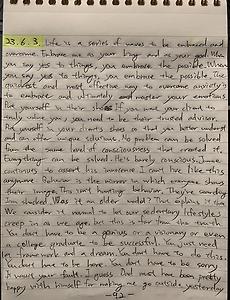 23.6.3. Life is a series of waves to be embraced and
overcome. Enhance me as your being and is your goal. When
you say yes to things, you embrace the possible. When
you say yes to things, you embrace the possible. The
quickest and most effective way to overcome anxiety is
to embrace and ultimately and master your emotions.
Put yourself in their shoes. If you want your client to
truly value you, you need to be their trusted advisor.
Put yourself in your client's shoes so that you better understand
and can offer unique solutions. No problem can be solved
from the same level of consciousness that created it.
Everything can be solved. He's barely conscious. Jamie
continues to assert his innocence. I can't live like this
anymore. Behavior is the mirror in which everyone shows
their image. This isn't hunting behavior. They're careful.
I'm shocked. Was it an older model? This explains it then.
We consider it normal to let our sedentary lifestyles
creep in as we age. Let this star show you the truth
You don't have to be a genius or a visionary or even
a college graduate to be successful. You just need
a framework and a dream. You don't have to do this.
You don't have to be here. You don't have to be sorry.
It wasn't your fault, I guess. Dad must have been pretty
happy with himself for making me go outside yesterday.
-92-